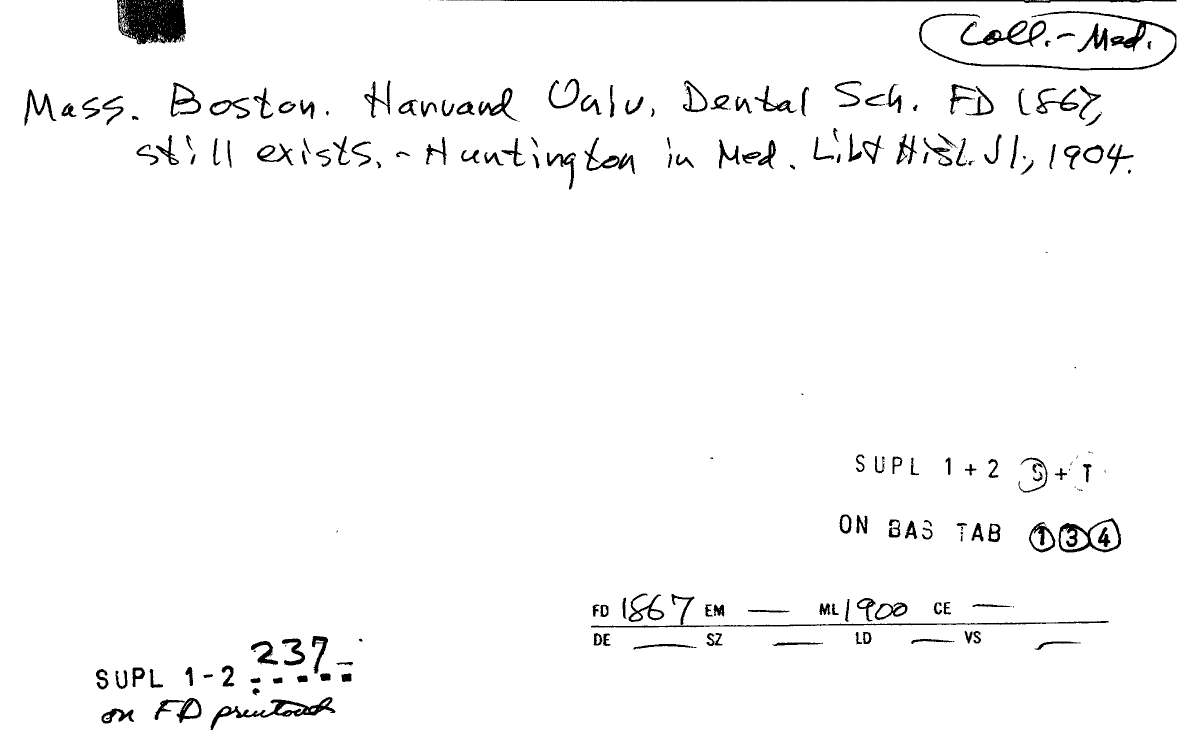 Coll.-Med.
Mass. Boston. Harvard Univ. Dental Sch. FD 1867,
still exists. - Huntington in Med. Lib & Hist. Jl., 1904.
SUPL 1+2 S+T
ON BAS TAB 1 3 4
FD 1867 EM — ML 1900 CE —
DE — SZ — LD — VS —
SUPL 1-2 237-
on FD printout